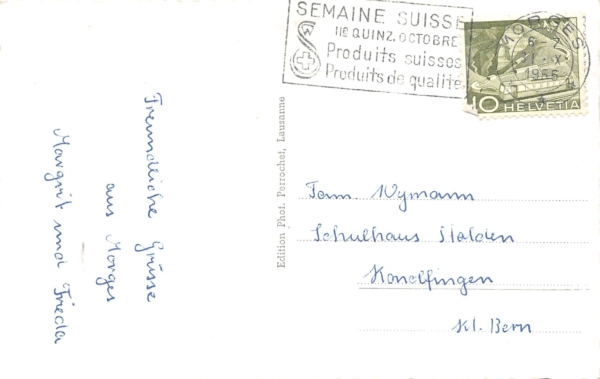 SEMAINE SUISSE
IIE QUINZ. OCTOBRE
Produits suisses
Produits de qualité
MORGES
1956
10 HELVETIA
Freundliche Grüsse
aus Morges
Margrit und Frieda
Edition Phot. Perrochet, Lausanne
Fam. Wymann
Schulhaus Stalden
Konolfingen
Kt. Bern